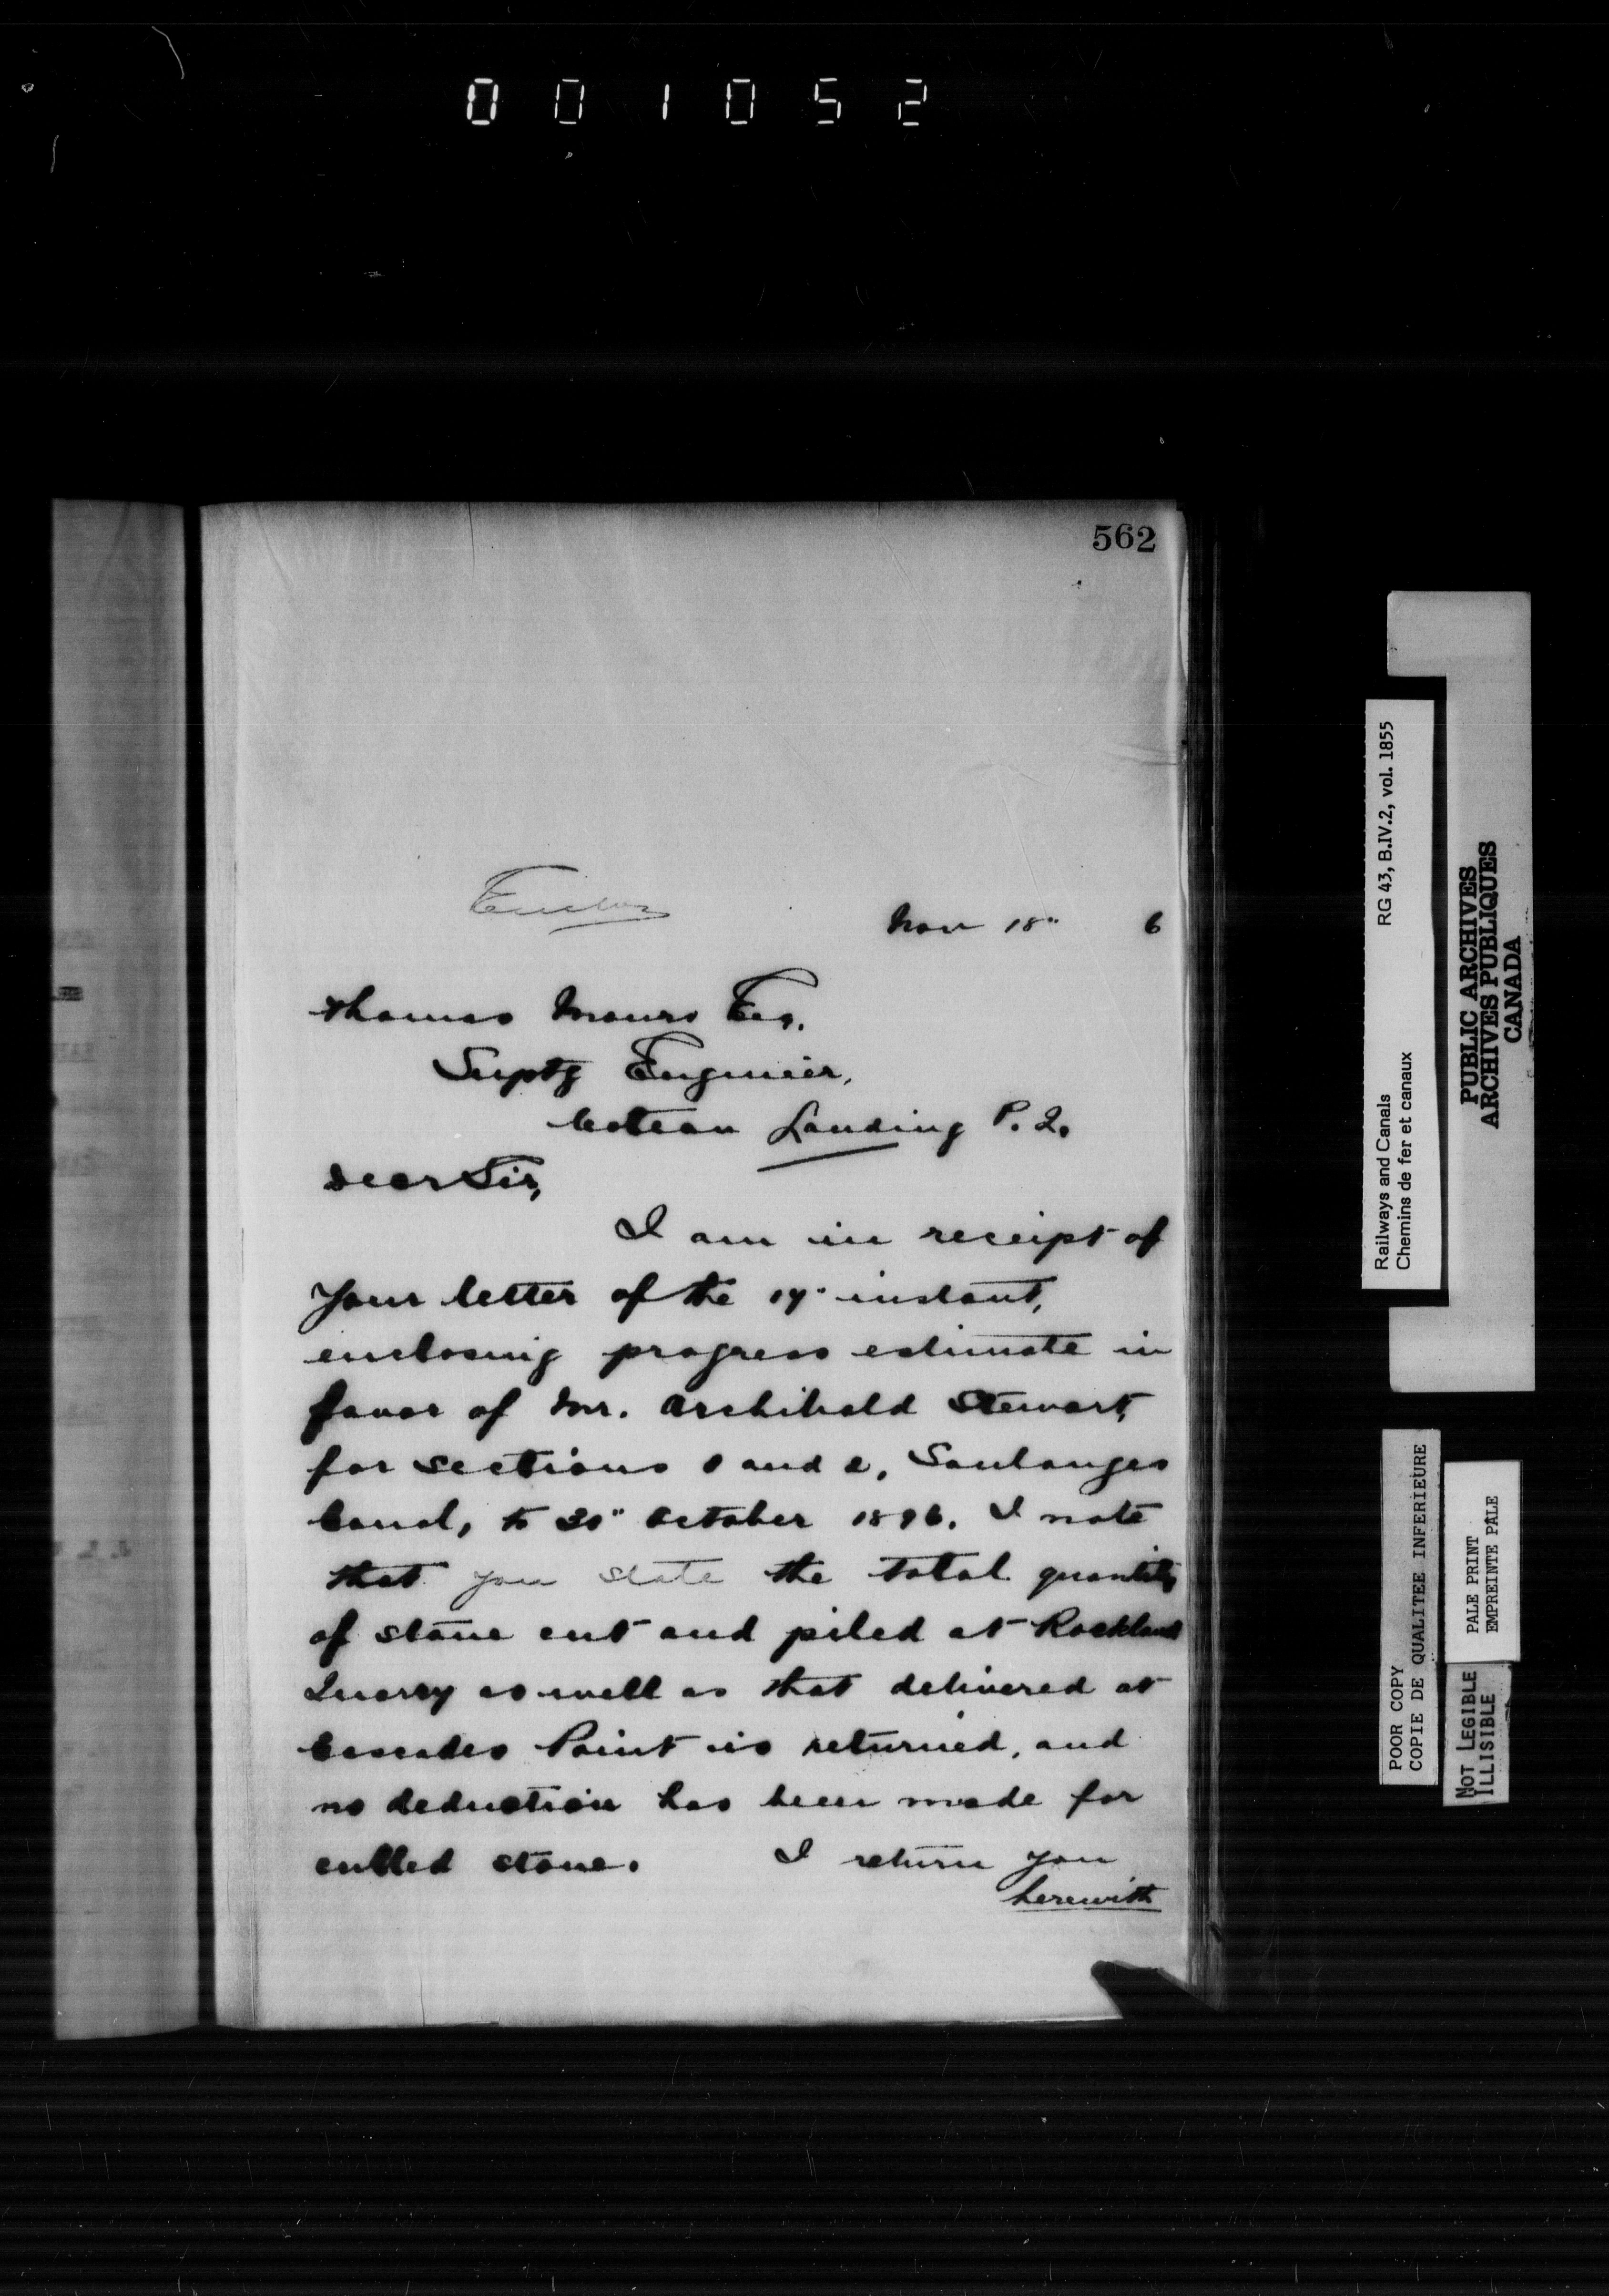 001052
562
Nov 18" 6
Thomas Monro Esq.
Suptg Engineer,
Coteau Landing P.Q.
Dear Sir,
I am in receipt of
your letter of the 17" instant,
enclosing progress estimate in
favor of Mr. Archibald Stewart,
for Sections 1 and 2, Soulanges
Canal, to 31" October 1896. I note
that you state the total quantity
of stone cut and piled at Rockland
Quarry as well as that delivered at
Cascades Point is returned, and
no deduction has been made for
culled stone. I return you
herewith
Railways and Canals RG 43, B.IV.2, vol. 1855
Chemins de fer et canaux
PUBLIC ARCHIVES
ARCHIVES PUBLIQUES
CANADA
POOR COPY
COPIE DE QUALITEE INFERIEURE
PALE PRINT
EMPREINTE PALE
NOT LEGIBLE
ILLISIBLE